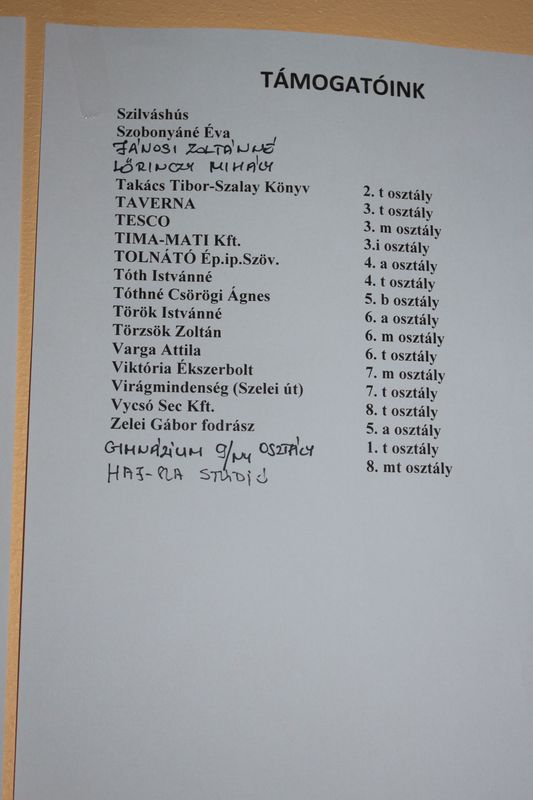 TÁMOGATÓINK
Szilváshús
Szobonyáné Éva
JÁNOSI ZOLTÁNNÉ
LŐRINCZY MIHÁLY
Takács Tibor-Szalay Könyv
TAVERNA
TESCO
TIMA-MATI Kft.
TOLNÁTÓ Ép.ip.Szöv.
Tóth Istvánné
Tóthné Csörögi Ágnes
Török Istvánné
Törzsök Zoltán
Varga Attila
Viktória Ékszerbolt
Virágmindenség (Szelei út)
Vycsó Sec Kft.
Zelei Gábor fodrász
GIMNÁZIUM 9/NY OSZTÁLY
STÚDIÓ
2. t osztály
3. t osztály
3. m osztály
3.i osztály
4. a osztály
4. t osztály
5. b osztály
6. a osztály
6. m osztály
6. t osztály
7. m osztály
7. t osztály
8. t osztály
5. a osztály
1. t osztály
8. mt osztály